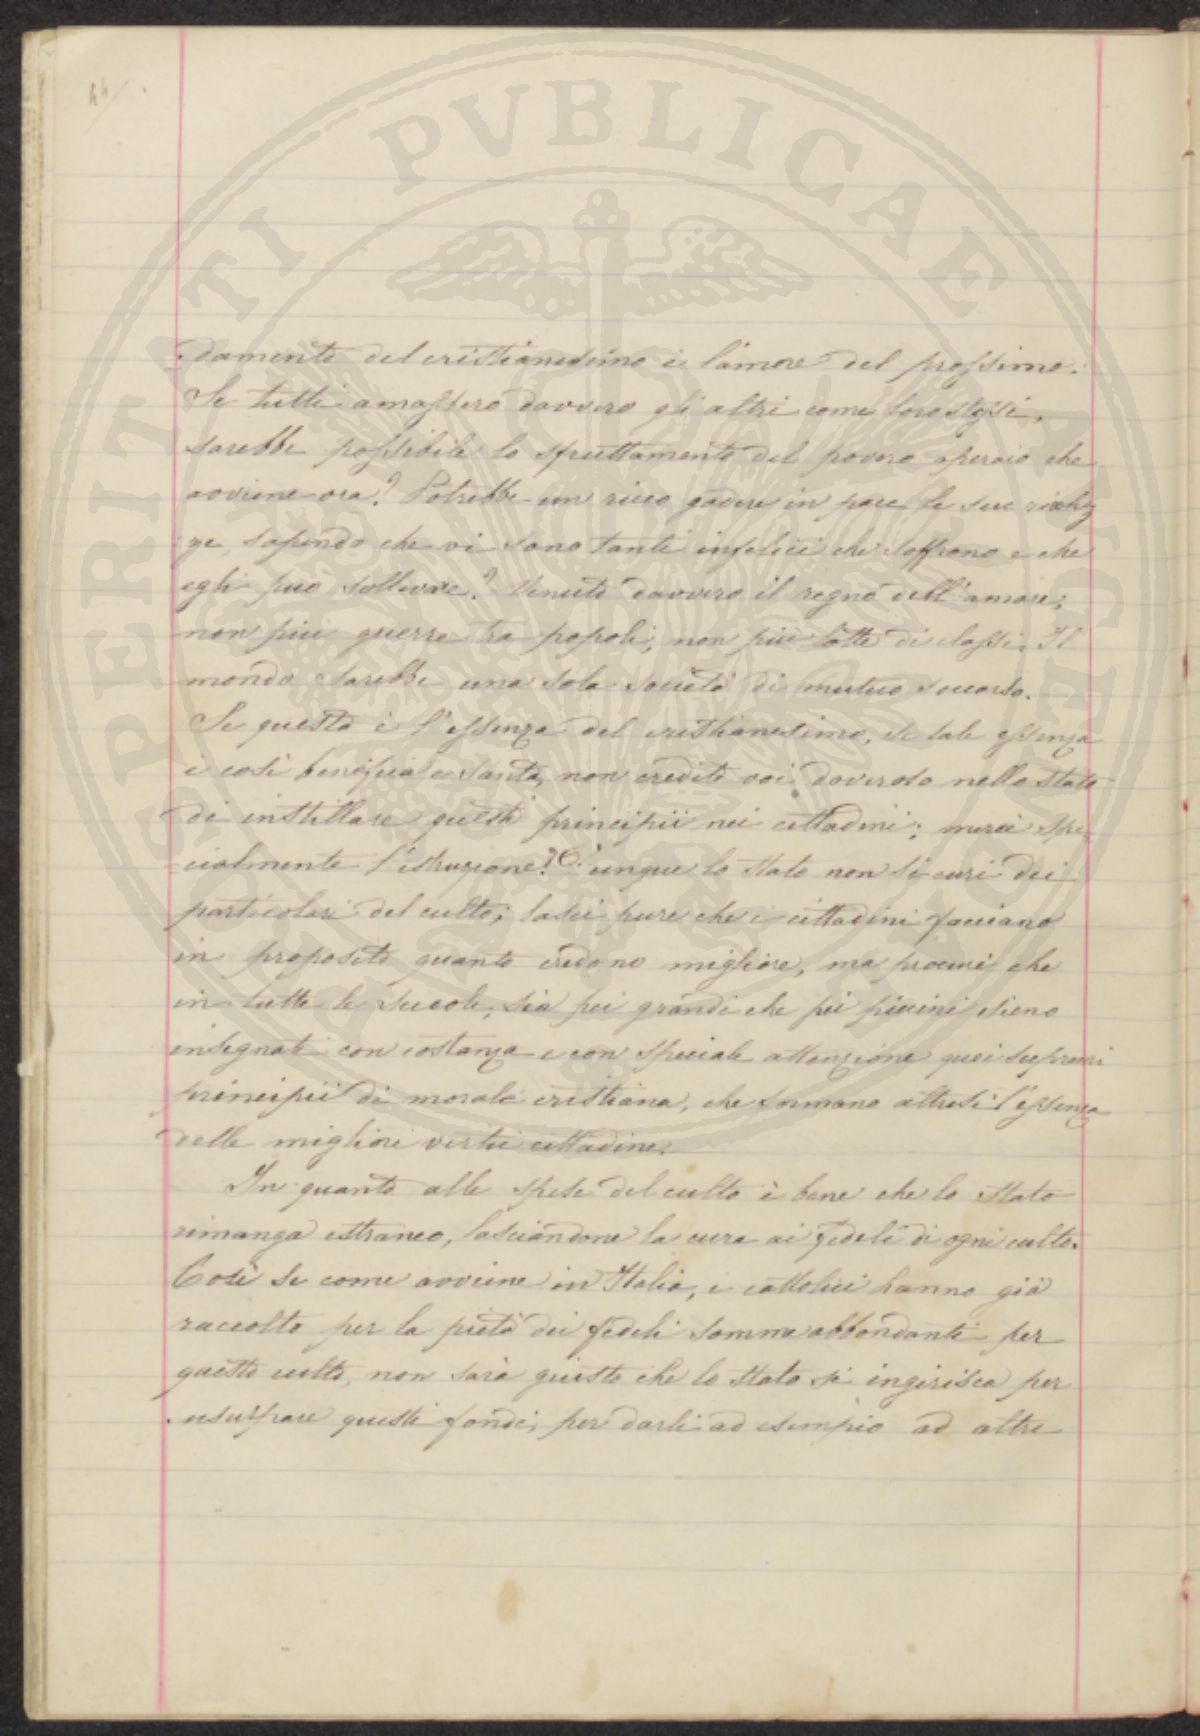 44
damento del cristianesimo è l'amore del prossimo.
Se tutti amassero davvero gli altri come loro stessi,
sarebbe possibile lo sfruttamento del povero operaio che
avviene ora? Potrebbe un ricco godere in pace le sue richez
ze sapendo che vi sono tanti infelici che soffrono e che
egli può sollevare? Venuto davvero il regno dell'amore,
non più guerre tra popoli, non più lotte di classi. Il
mondo sarebbe una sola società di mutuo soccorso.
Se questa è l'essenza del cristianesimo, se tale essenza
è così benefica e santa, non credete voi doveroso nello stato
di instillare questi principii nei cittadini; mercè spe
cialmente l'istruzione? Dunque lo stato non si curi dei
particolari del culto; lasci pure che i cittadini facciano
in proposito quanto credono migliore, ma procuri che
in tutte le scuole, sia pei grandi che pei piccini sieno
insegnati con costanza e con speciale attenzione quei supremi
principii di morale cristiana, che formano altresì l'essenza
delle migliori virtù cittadine.
In quanto alle spese del culto è bene che lo stato
rimanga estraneo, lasciandone la cura ai fedeli di ogni culto.
Così se come avviene in Italia, i cattolici hanno già
raccolto per la pietà dei fedeli somme abbondanti per
questo culto, non sarà giusto che lo stato si ingerisca per
usurpare questi fondi, per darli ad esempio ad altre
PROSPERITATI PVBLICAE